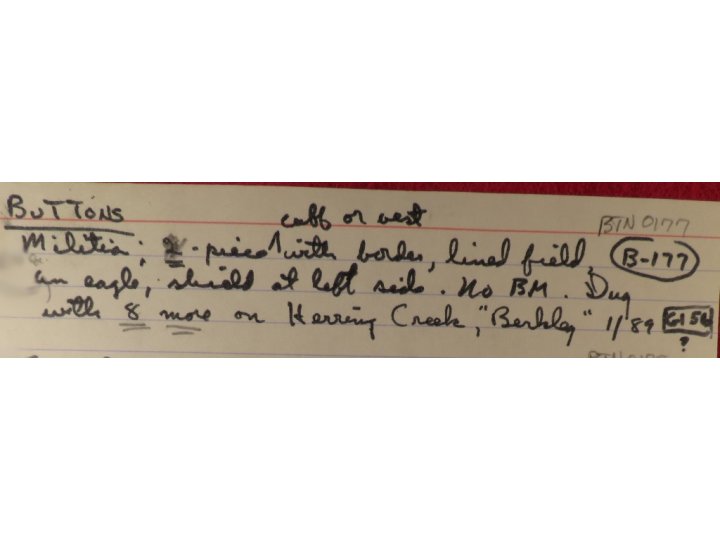 BUTTONS
cuff or vest
BTN 0177
Militia; -piece ^ with border, lined field, B-177
an eagle, shield at left side. No BM. Dug
with 8 more on Herring Creek, "Berkley" 1/89
?